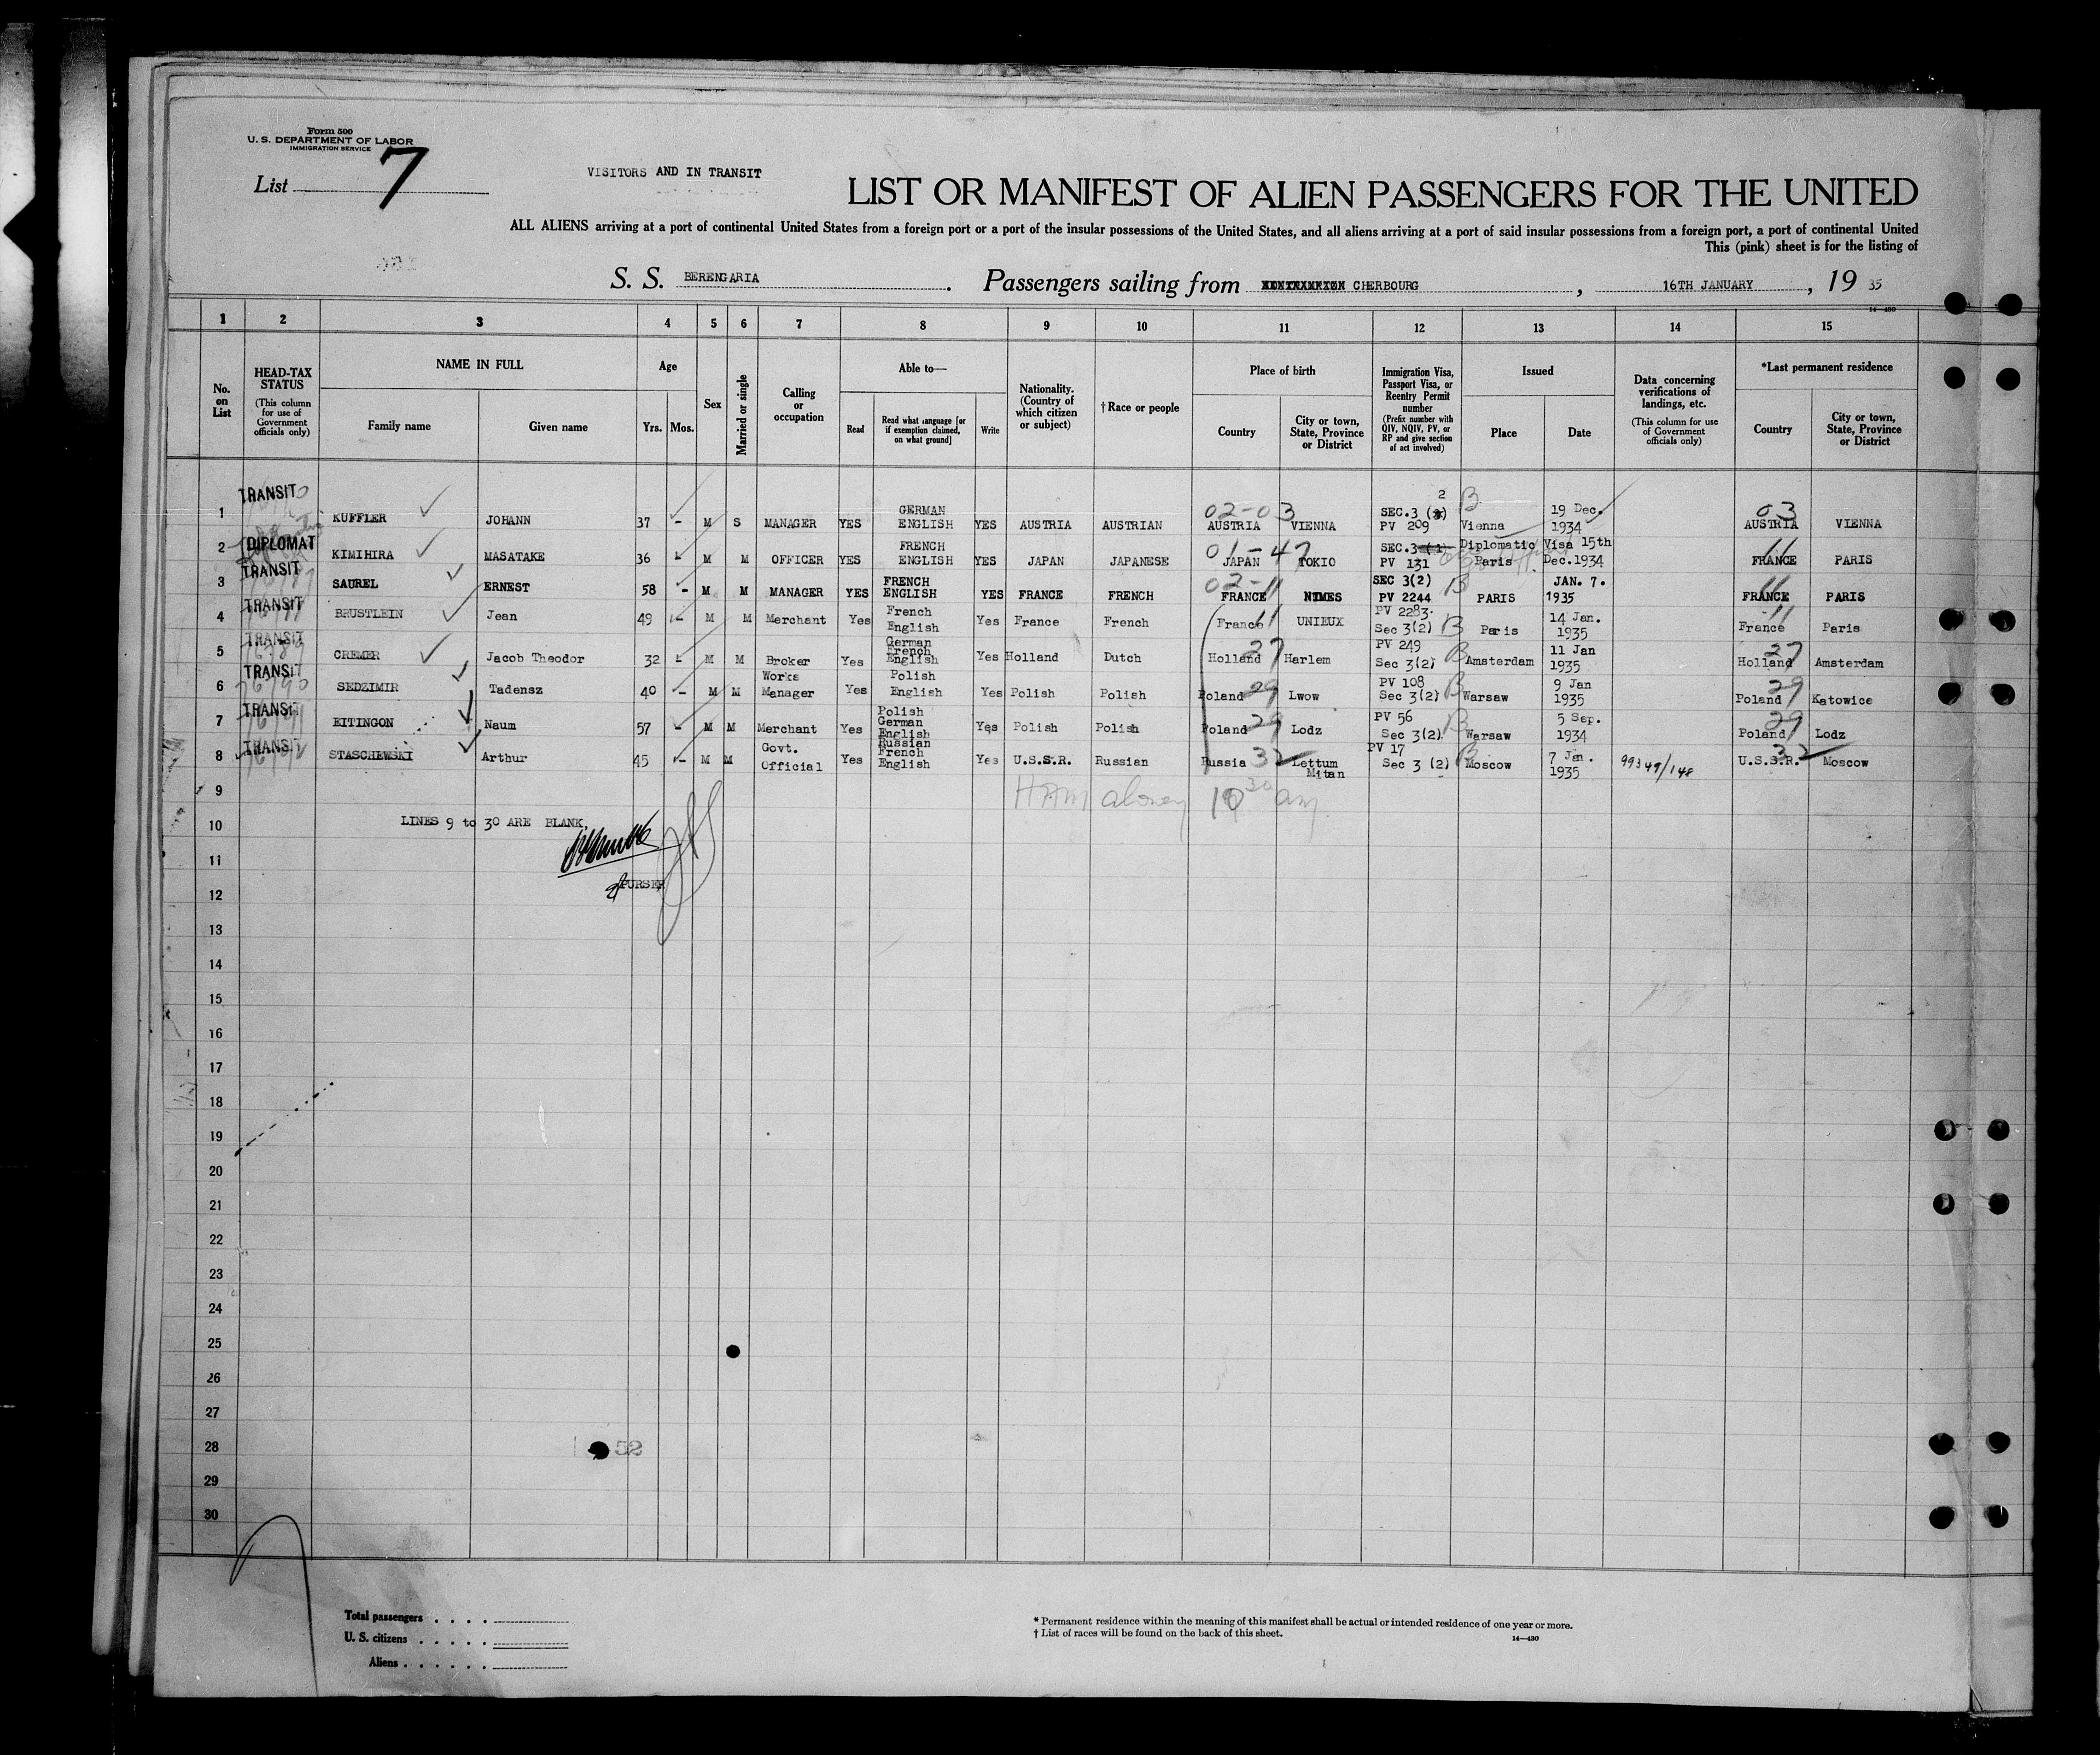 Form 500
U. S. DEPARTMENT OF LABOR
IMMIGRATION SERVICE
List 7
VISITORS AND IN TRANSIT
LIST OR MANIFEST OF ALIEN PASSENGERS FOR THE UNITED
ALL ALIENS arriving at a port of continental United States from a foreign port or a port of the insular possessions of the United States, and all aliens arriving at a port of said insular possessions from a foreign port, a port of continental United
This (pink) sheet is for the listing of
S. S. BERENGARIA. Passengers sailing from CHERBOURG, 16TH JANUARY, 19 35
14—430
1 2 3 4 5 6 7 8 9 10 11 12 13 14 15
No. on List
HEAD-TAX STATUS (This column for use of Government officials only)
NAME IN FULL
Family name
Given name
Age
Yrs. Mos.
Sex
Married or single
Calling or occupation
Able to—
Read
Read what language [or if exemption claimed, on what ground]
Write
Nationality. (Country of which citizen or subject)
†Race or people
Place of birth
Country
City or town, State, Province or District
Immigration Visa, Passport Visa, or Reentry Permit number (Prefix number with QIV, NQIV, PV, or RP and give section of act involved)
Issued
Place
Date
Data concerning verifications of landings, etc. (This column for use of Government officials only)
*Last permanent residence
Country
City or town, State, Province or District
1 TRANSIT KUFFLER JOHANN 37 - M S MANAGER YES GERMAN ENGLISH YES AUSTRIA AUSTRIAN 02-03 AUSTRIA VIENNA SEC.3 (2) PV 209 B Vienna 19 Dec. 1934 03 AUSTRIA VIENNA
2 DIPLOMAT KIMIHIRA MASATAKE 36 - M M OFFICER YES FRENCH ENGLISH YES JAPAN JAPANESE 01-47 JAPAN TOKIO SEC.3 (1) PV 131 Diplomatic Visa 15th Paris Dec.1934 11 FRANCE PARIS
3 TRANSIT SAUREL ERNEST 58 - M M MANAGER YES FRENCH ENGLISH YES FRANCE FRENCH 02-11 FRANCE NIMES SEC 3(2) PV 2244 B PARIS JAN. 7. 1935 11 FRANCE PARIS
4 TRANSIT BRUSTLEIN Jean 49 - M M Merchant Yes French English Yes France French France 11 UNIEUX PV 2283. Sec 3(2) B Paris 14 Jan. 1935 11 France Paris
5 TRANSIT CREMER Jacob Theodor 32 - M M Broker Yes German French English Yes Holland Dutch Holland 27 Harlem PV 249 Sec 3(2) B Amsterdam 11 Jan 1935 27 Holland Amsterdam
6 TRANSIT SEDZIMIR Tadensz 40 - M M Works Manager Yes Polish English Yes Polish Polish Poland 29 Lwow PV 108 Sec 3(2) B Warsaw 9 Jan 1935 29 Poland Katowice
7 TRANSIT EITINGON Naum 57 - M M Merchant Yes Polish German English Yes Polish Polish Poland 29 Lodz PV 56 Sec 3(2) B Warsaw 5 Sep. 1934 29 Poland Lodz
8 TRANSIT STASCHEWSKI Arthur 45 - M M Govt. Official Yes Russian French English Yes U.S.S.R. Russian Russia 32 Lettum Mitan PV 17 Sec 3 (2) B Moscow 7 Jan. 1935 99349/148 32 U.S.S.R. Moscow
9
10 LINES 9 to 30 ARE BLANK
11
12 PURSER
13
14
15
16
17
18
19
20
21
22
23
24
25
26
27
28 52
29
30
Total passengers . . . .
U. S. citizens . . . . .
Aliens . . . . . .
* Permanent residence within the meaning of this manifest shall be actual or intended residence of one year or more.
† List of races will be found on the back of this sheet.
14—430